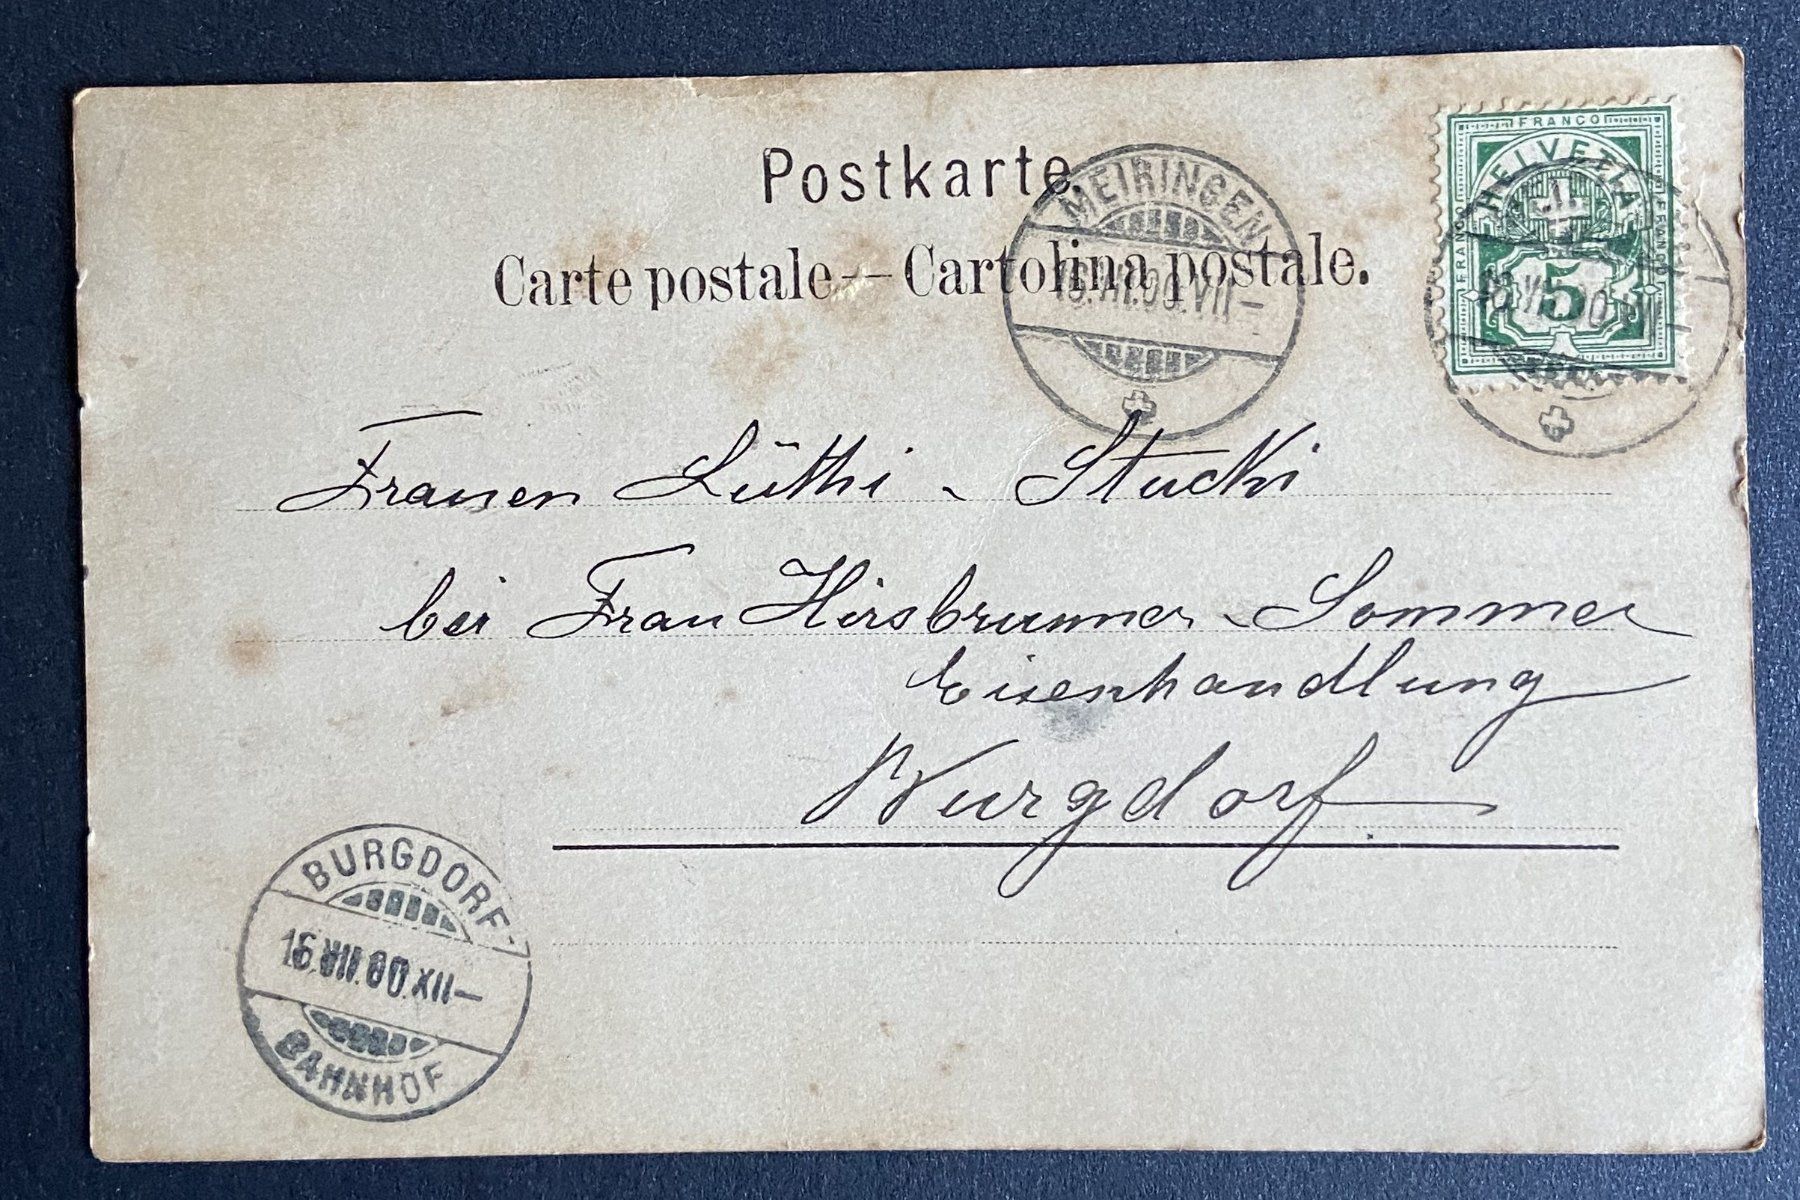 Postkarte.
Carte postale — Cartolina postale.
MEIRINGEN
16.VII.00.VII–
FRANCO
HELVETIA
FRANCO
FRANCO
5
Frauen Lüthi - Stucki
bei Frau Hirsbrunner - Sommer
Eisenhandlung
Burgdorf
BURGDORF-
16.VIII.00.XII–
BAHNHOF